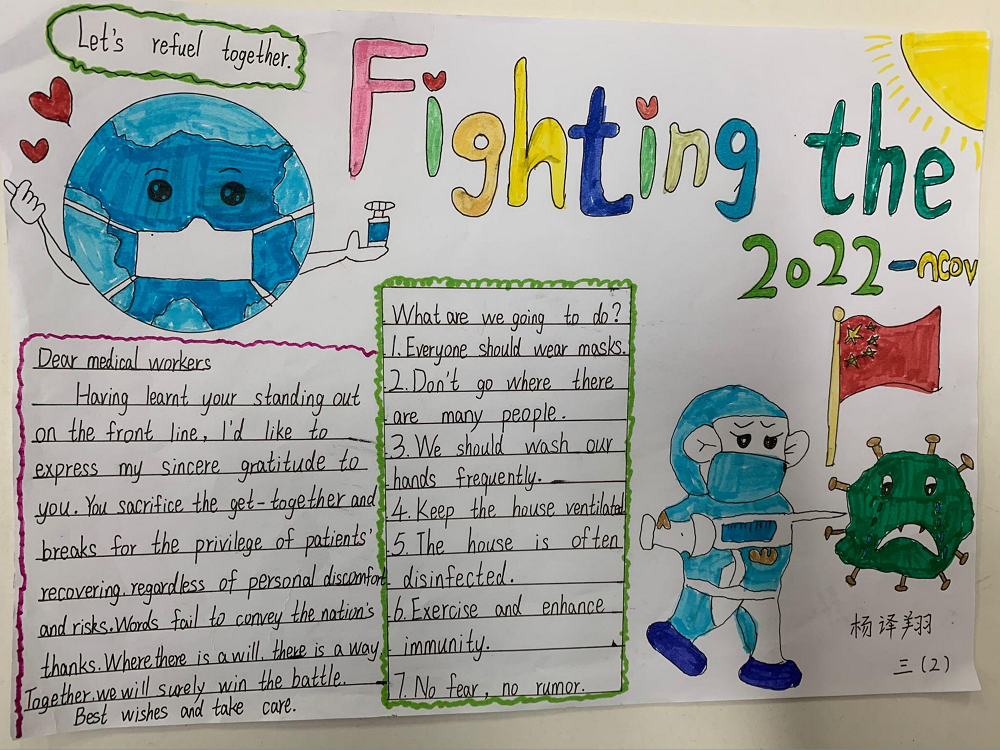 Let's refuel together.
Fighting the
2022-ncov
Dear medical workers
Having learnt your standing out
on the front line, I'd like to
express my sincere gratitude to
you. You sacrifice the get-together and
breaks for the privilege of patients'
recovering, regardless of personal discomfort
and risks. Words fail to convey the nation's
thanks. Where there is a will, there is a way.
Together, we will surely win the battle.
Best wishes and take care.
What are we going to do?
1. Everyone should wear masks.
2. Don't go where there
are many people.
3. We should wash our
hands frequently.
4. Keep the house ventilated
5. The house is often
disinfected.
6. Exercise and enhance
immunity.
7. No fear, no rumor.
杨译翔
三(2)